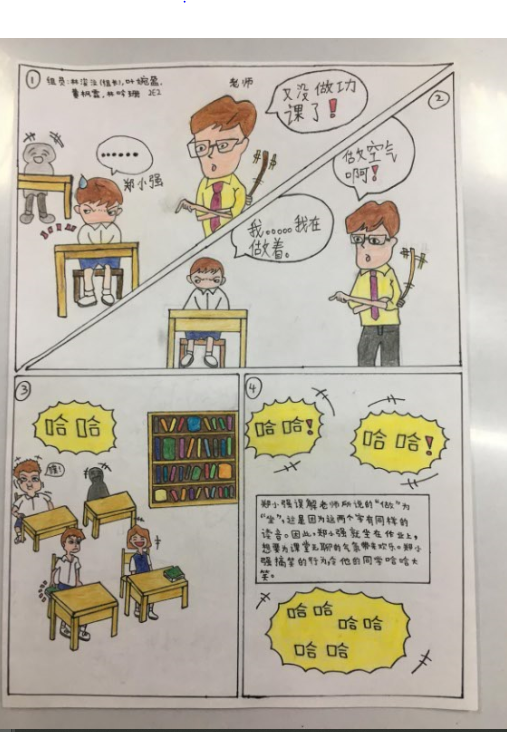 ①
组员:林
2E2
老师
又没做功
课了!
......
郑小强
②
做空气
啊!
我......我在
做着。
③
哈哈
④
哈哈!
哈哈!
郑小强误解老师所说的“做”为
“坐”,这是因为这两个字有同样的
读音。因此,郑小强就坐在作业上,
想要为课堂无聊的气氛带来欢乐。郑小
强搞笑的行为令他的同学哈哈大
笑。
哈哈
哈哈
哈哈